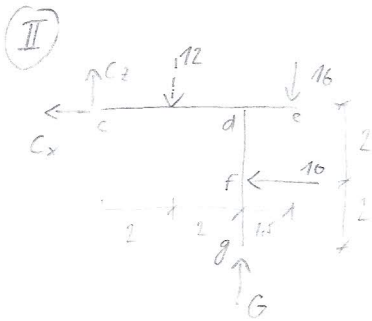 II
Cz 12 16
Cx c d e
2
f 10
2 2 1,5 2
g
G